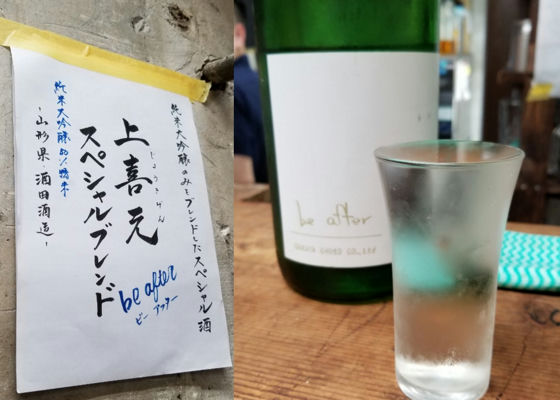 純米大吟醸のみをブレンドしたスペシャル酒
上喜元
じょうきげん
スペシャルブレンド
be after
ビーアフター
純米大吟醸50%精米
-山形県・酒田酒造-
be after